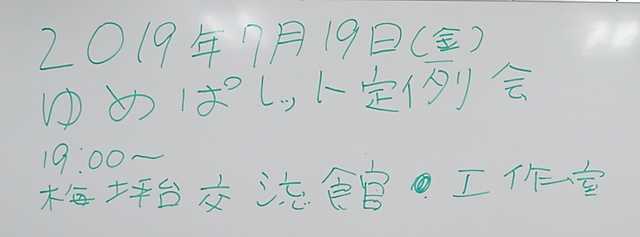 2019年7月19日(金)
ゆめぱレット定例会
19:00～
梅坪台交流館・工作室